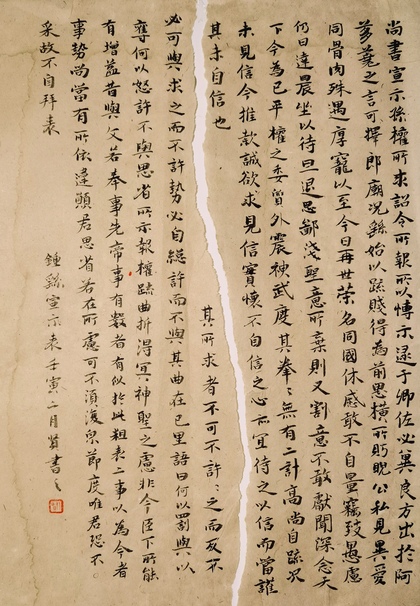 尚書宣示孫權所求詔令所報所以博示逮于卿佐必冀良方出於阿
芻蕘之言可擇郎廟況繇始以疏賤得為前恩橫所盼睨公私見異愛
同骨肉殊遇厚寵以至今日再世榮名同國休慼敢不自量竊致愚慮
仍日達晨坐以待旦退思鄙淺聖意所棄則又割意不敢獻聞深念天
下今為已平權之委質外震神武度其拳〻無有二計高尚自疏況
未見信今推款誠欲求見信實懷不自信之心亦宜待之以信而當護
其未自信也 其所求者不可不許〻之而反不
必可與求之而不許勢必自絕許而不與其曲在己里語曰何以罰與以
奪何以怒許不與思省所示報權疏曲折得宜神聖之慮非今臣下所能
有增益昔與文若奉事先帝事有數者有似於此粗表二事以為今者
事勢尚當有所依違願君思省若在所慮可不須復節度唯君恐不
采故不自拜表
鍾繇宣示表壬寅二月書之